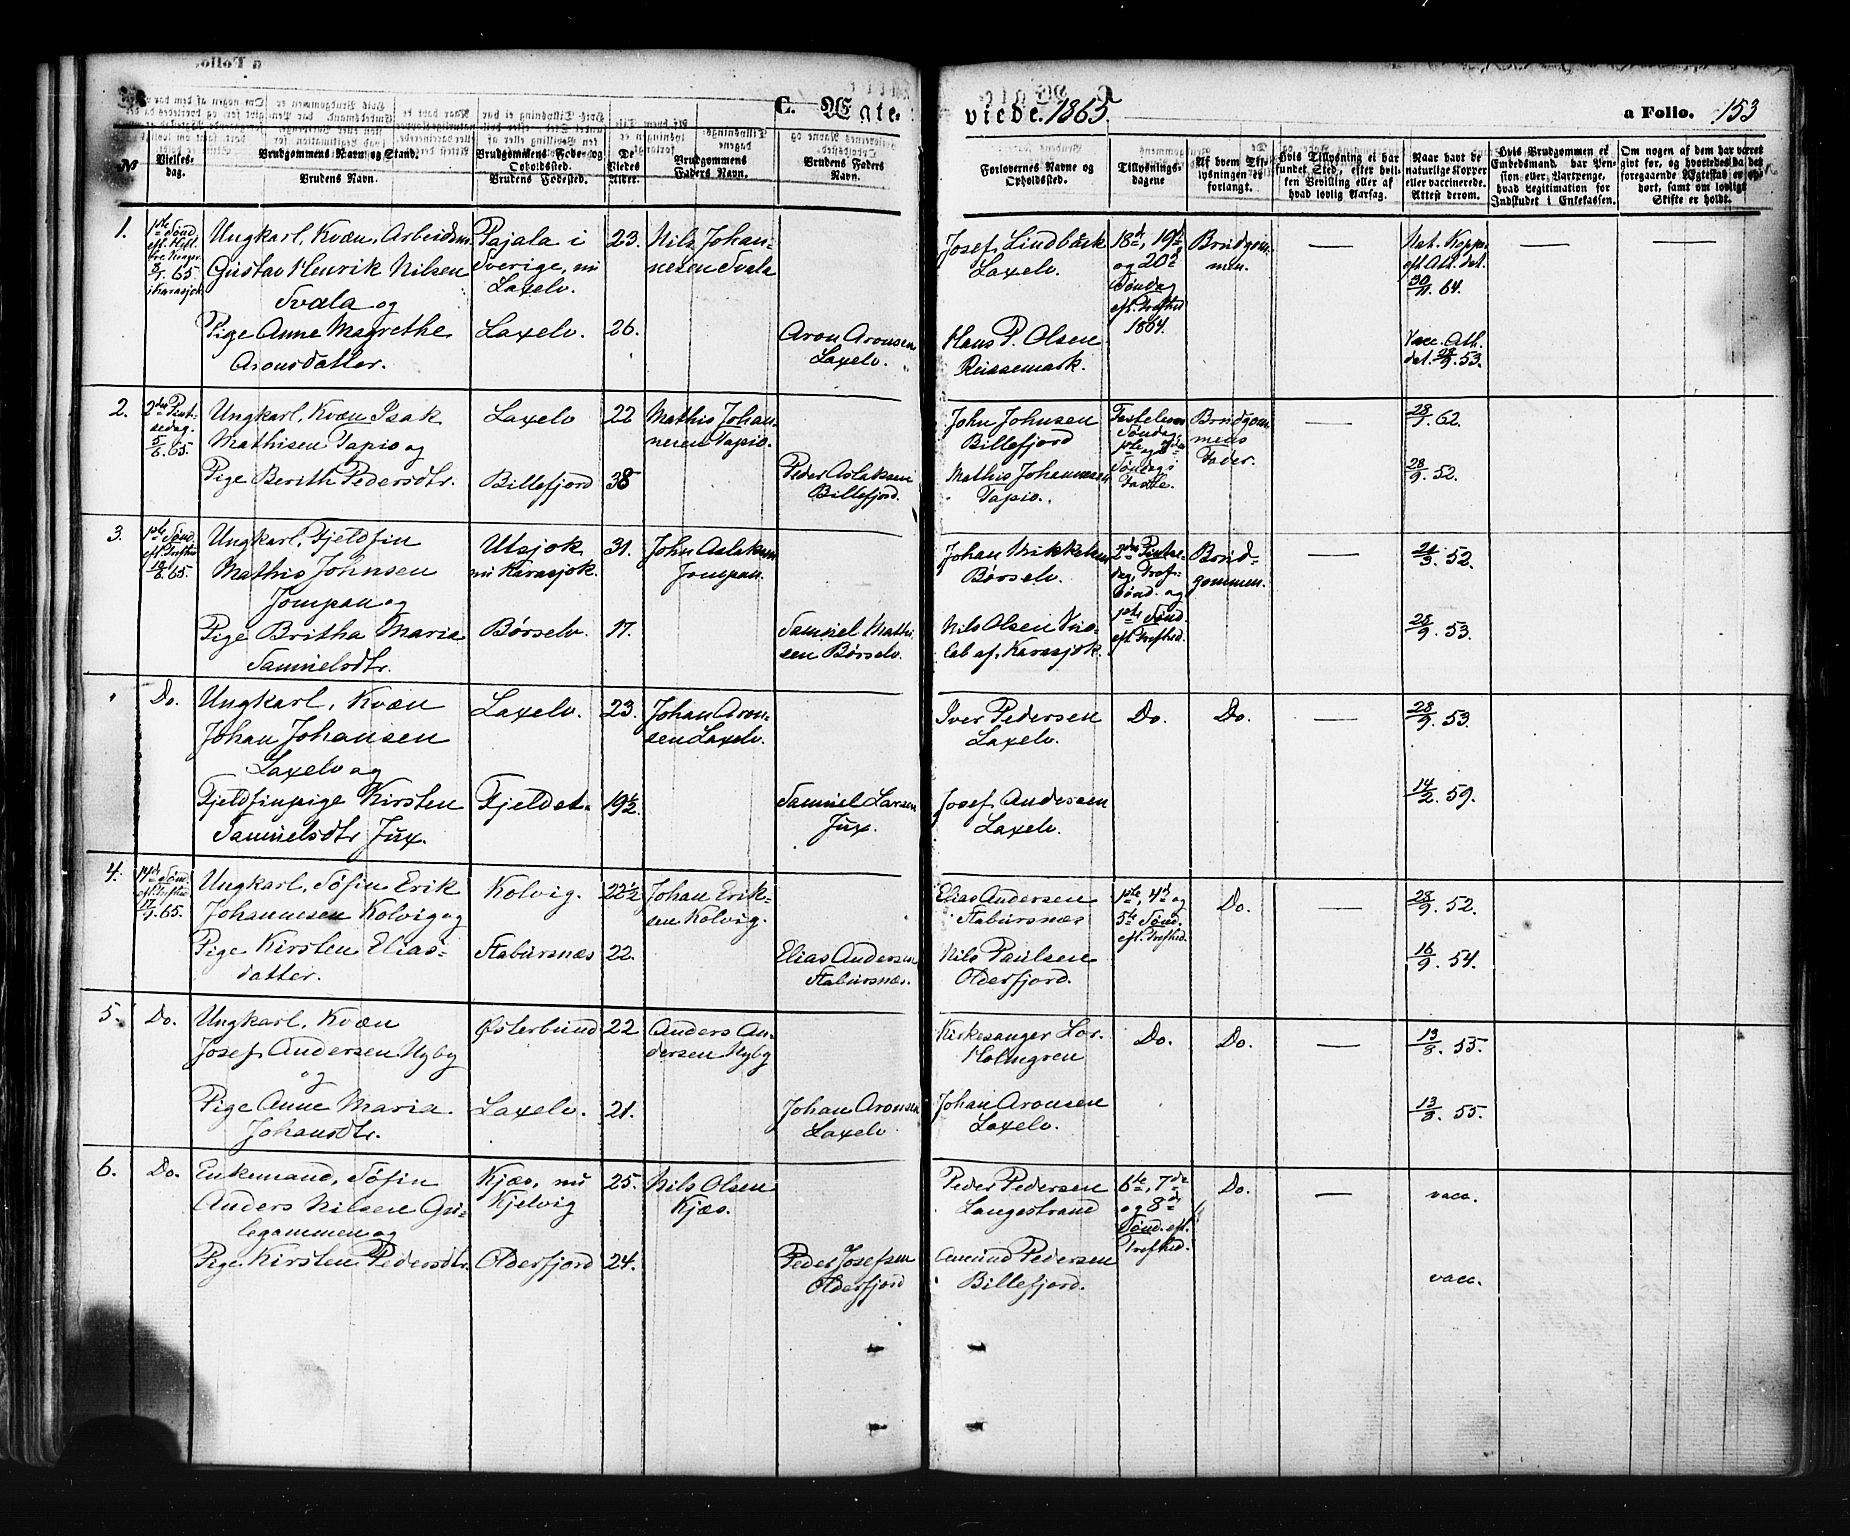 C. Ægte-
viede. 1865.
a Folio. 153
№
Vielses-
dag.
Brudgommens Navn og Stand.
Brudens Navn.
Brudgommens Føde- og
Opholdssted.
Brudens Fødested.
De
Viedes
Alder.
Brudgommens
Faders Navn.
Brudens Faders
Navn.
Forlovernes Navne og
Opholdssted.
Tillysnings-
dagene
Af hvem Til-
lysningen er
forlangt.
Hvis Tillysning ei har
fundet Sted, efter hvil-
ken Bevilling eller af
hvad lovlig Aarsag.
Naar havt de
naturlige Kopper
eller vaccinerede.
Attest derom.
Hvis Brudgommen er
Embedsmand har Pen-
sion eller Vartpenge,
hvad Legitimation for
Indskudet i Enkekassen.
Om nogen af dem har været
givt før, og hvorledes da det
foregaaende Ægteskab er op-
hørt, samt om lovligt
Skifte er holdt.
1.
1ste Sønd.
eft. Hell.
tre Konger
8/1 65.
i Karasjok
Ungkarl, Kvæn, Arbeidsm.
Gustav Henrik Nilsen
Svala og
Pige Anne Magrethe
Aronsdatter.
Pajala i
Sverige, nu
Laxelv.
Laxelv.
23.
26.
Nils Johan-
nesen Svala
Aron Aronsen
Laxelv.
Josef Lindbäck
Laxelv.
Hans P. Olsen
Russemark.
18de, 19de
og 20de
Søndag
eft. Trefhed
1864.
Brudgom-
men.
—
Nat. Kopper
eft. Att. dat.
30/11. 64.
Vacc. Att.
dat. 28/9. 53.
—
—
2.
2den Pint-
sedag.
5/6. 65.
Ungkarl, Kvæn Isak
Mathisen Tapio og
Pige Berith Pedersdtr.
Laxelv
Billefjord
22
38
Mathis Johan-
nesen Tapio.
Peder Aslaksen
Billefjord.
John Johnsen
Billefjord
Mathis Johannesen
Tapio.
Fastelavns
Søndag,
1ste og 2den
Søndag i
Faste.
Brudgom-
mens
Fader.
—
28/9 62.
28/9. 52.
3.
1ste Sønd.
eft. Trefhd.
18/6. 65.
Ungkarl, Fjeldfin
Mathis Johnsen
Jompan og
Pige Britha Maria
Samuelsdtr.
Utsjok
nu Karasjok.
Børselv.
31.
17.
John Aslaksen
Jompan.
Samuel Mathi-
sen Børselv.
Johan Mikkelsen
Børselv.
Nils Olsen
af Karasjok.
2den Pintse-
dag, Tref.
Sønd. og
1ste Sønd.
eft. Trefhed.
Brud-
gommen.
—
52.
28/9. 53.
Do.
Ungkarl, Kvæn
Johan Johansen
Laxelv og
Fjeldfinpige Kirsten
Samuelsdtr Jux.
Laxelv.
Fjeldet.
23.
19½
Johan Aron-
sen Laxelv.
Samuel Larsen
Jux.
Iver Pedersen
Laxelv.
Josef Andersen
Laxelv.
Do.
Do.
—
28/9. 53.
14/2. 59.
4.
14de Sønd.
eft. Trefhd.
17/9. 65.
Ungkarl, Søfin Erik
Johannesen Kolvig og
Pige Kirsten Elias-
datter.
Kolvig.
Stabursnæs
22½
22.
Johan Erik-
sen Kolvig.
Elias Andersen
Stabursnæs.
Elias Andersen
Stabursnæs
Nils Paulsen
Olderfjord.
1ste, 4de og
5te Sønd.
eft. Trefhed.
Do.
—
28/9. 52.
16/9. 54.
5.
Do.
Ungkarl, Kvæn
Josef Andersen Nyby
og
Pige Anne Maria
Johansdtr.
Østerbund
Laxelv.
22
21.
Anders An-
dersen Nyby
Johan Aronsen
Laxelv
Kirkesanger Lor.
Holmgren
Johan Aronsen
Laxelv.
Do.
Do.
—
13/8. 55.
13/8. 55.
6.
Do.
Enkemand, Søfin
Anders Nilsen Gu-
legammen og
Pige Kirsten Pedersdtr.
Kjæs, nu
Kjelvig
Olderfjord
25.
24.
Nils Olsen
Kjæs.
Peder Josefsen
Olderfjord
Peder Pedersen
Langestrand
Amund Pedersen
Billefjord.
6te, 7de
og 8de
Sønd. eft.
Trefhed.
Do.
—
vacc.
vacc.